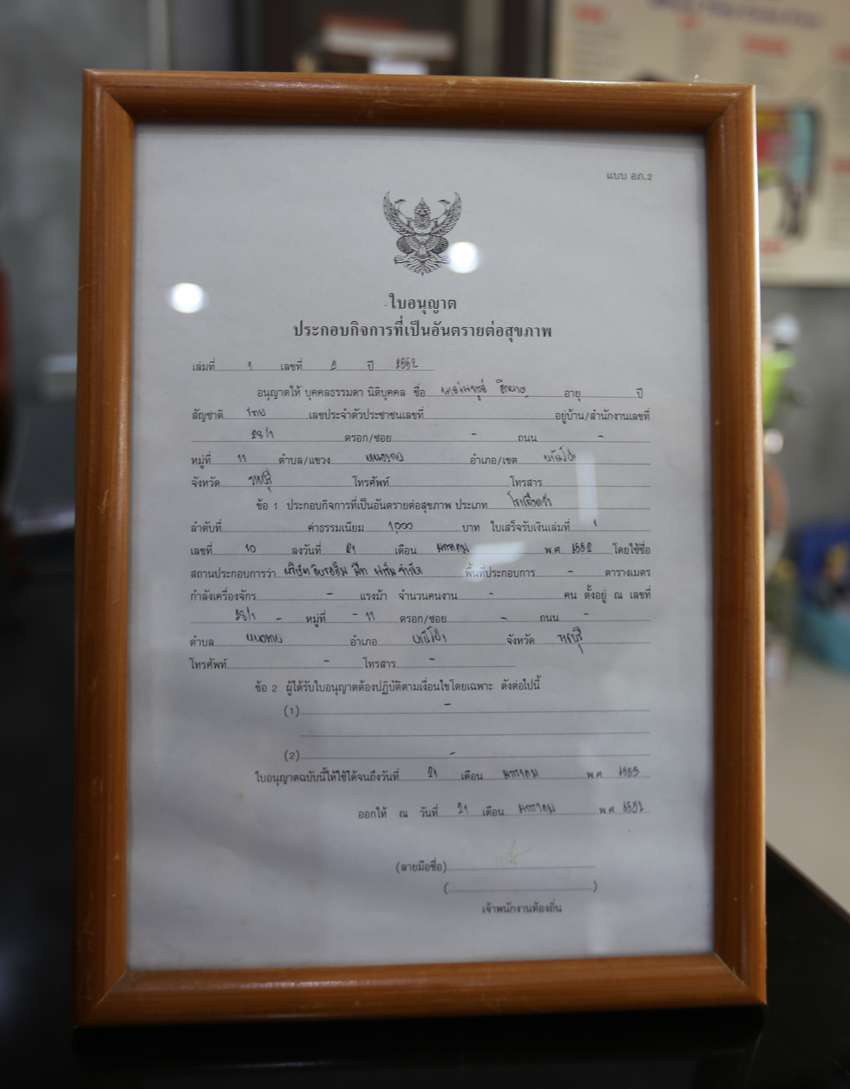 แบบ อภ.2
ใบอนุญาต
ประกอบกิจการที่เป็นอันตรายต่อสุขภาพ
เล่มที่ 1 เลขที่ 2 ปี 2552
อนุญาตให้ บุคคลธรรมดา นิติบุคคล ชื่อ อายุ ปี
สัญชาติ ไทย เลขประจำตัวประชาชนเลขที่ อยู่บ้าน/สำนักงานเลขที่
28/1 ตรอก/ซอย - ถนน -
หมู่ที่ 11 ตำบล/แขวง หนองกบ อำเภอ/เขต บ้านโป่ง
จังหวัด ราชบุรี โทรศัพท์ โทรสาร
ข้อ 1 ประกอบกิจการที่เป็นอันตรายต่อสุขภาพ ประเภท
ลำดับที่ ค่าธรรมเนียม 1,000 บาท ใบเสร็จรับเงินเล่มที่ 1
เลขที่ 10 ลงวันที่ 21 เดือน มกราคม พ.ศ. 2552 โดยใช้ชื่อ
สถานประกอบการว่า บริษัท จำกัด พื้นที่ประกอบการ - ตารางเมตร
กำลังเครื่องจักร - แรงม้า จำนวนคนงาน - คน ตั้งอยู่ ณ เลขที่
28/1 - หมู่ที่ - 11 ตรอก/ซอย - ถนน -
ตำบล หนองกบ อำเภอ บ้านโป่ง จังหวัด ราชบุรี
โทรศัพท์ - โทรสาร -
ข้อ 2 ผู้ได้รับใบอนุญาตต้องปฏิบัติตามเงื่อนไขโดยเฉพาะ ดังต่อไปนี้
(1) -
(2) -
ใบอนุญาตฉบับนี้ให้ใช้ได้จนถึงวันที่ 21 เดือน มกราคม พ.ศ. 2553
ออกให้ ณ วันที่ 21 เดือน มกราคม พ.ศ. 2552
(ลายมือชื่อ)
( )
เจ้าพนักงานท้องถิ่น